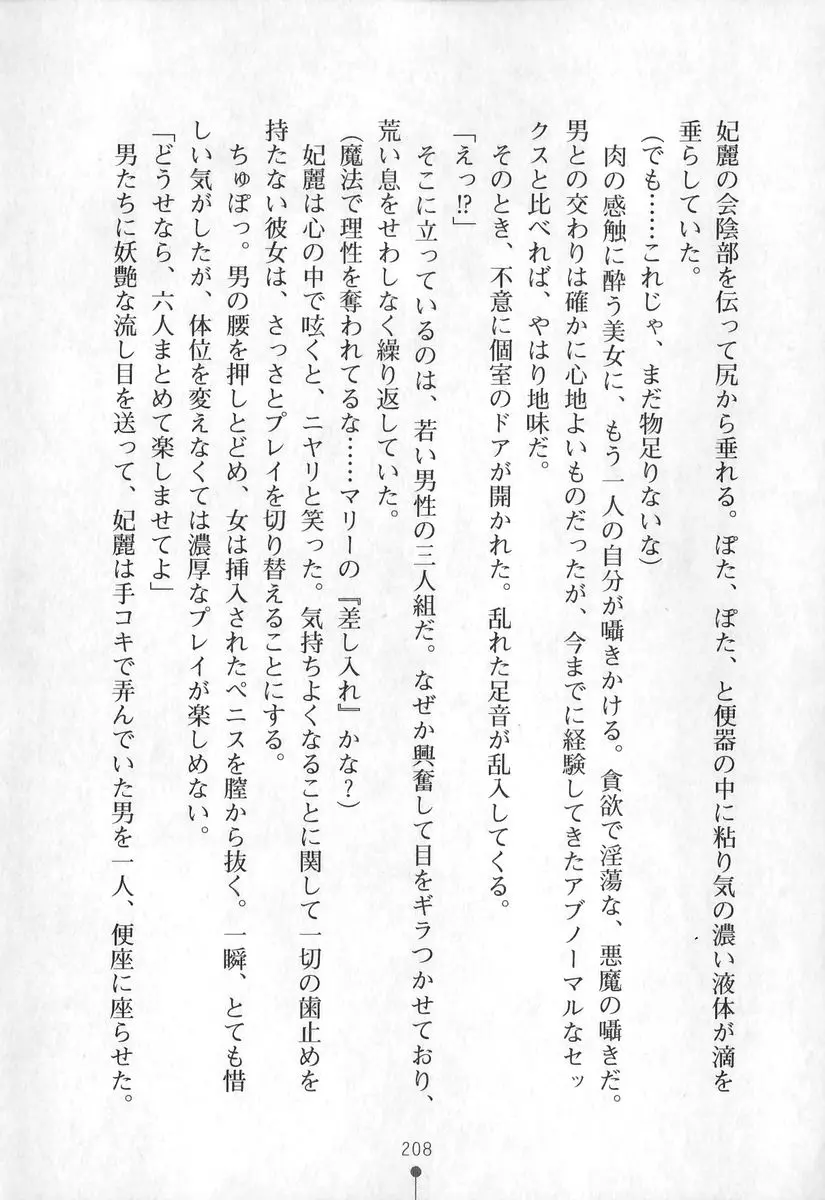 妃麗の会陰部を伝って尻から垂れる。ぽた、ぽた、と便器の中に粘り気の濃い液体が滴を
垂らしていた。
（でも……これじゃ、まだ物足りないな）
　肉の感触に酔う美女に、もう一人の自分が囁きかける。貪欲で淫蕩な、悪魔の囁きだ。
男との交わりは確かに心地よいものだったが、今までに経験してきたアブノーマルなセッ
クスと比べれば、やはり地味だ。
　そのとき、不意に個室のドアが開かれた。乱れた足音が乱入してくる。
「えっ!?」
　そこに立っているのは、若い男性の三人組だ。なぜか興奮して目をギラつかせており、
荒い息をせわしなく繰り返していた。
（魔法で理性を奪われてるな……マリーの『差し入れ』かな？）
　妃麗は心の中で呟くと、ニヤリと笑った。気持ちよくなることに関して一切の歯止めを
持たない彼女は、さっさとプレイを切り替えることにする。
　ちゅぽっ。男の腰を押しとどめ、女は挿入されたペニスを膣から抜く。一瞬、とても惜
しい気がしたが、体位を変えなくては濃厚なプレイが楽しめない。
「どうせなら、六人まとめて楽しませてよ」
　男たちに妖艶な流し目を送って、妃麗は手コキで弄んでいた男を一人、便座に座らせた。
208